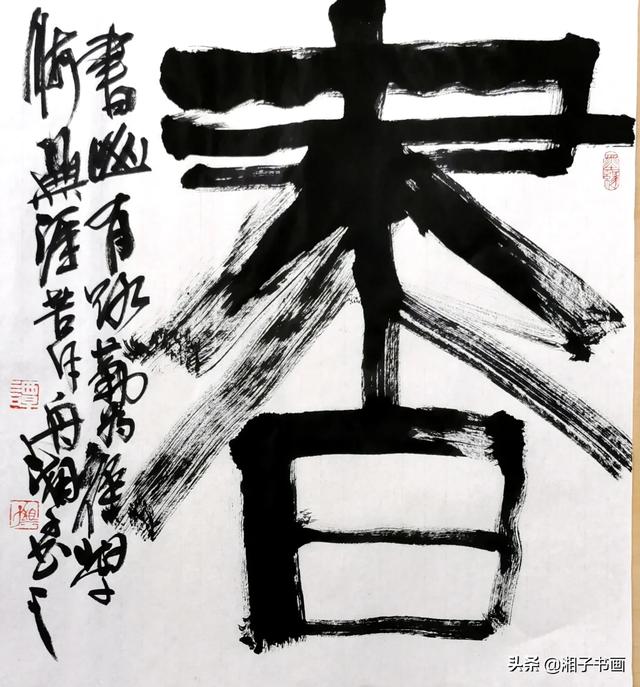 書
書山有路勤為徑學
海無涯苦作舟湘子書
头条 @湘子书画